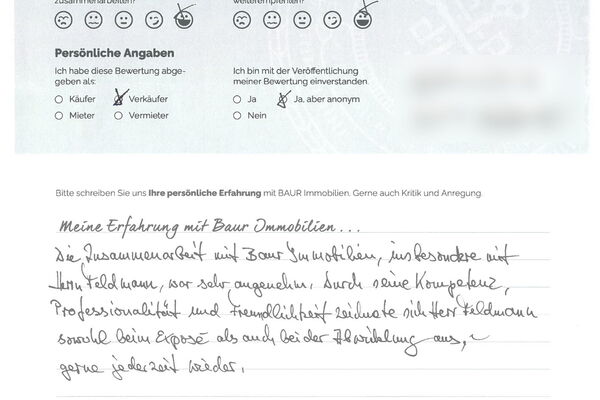 zusammenarbeiten? weiterempfehlen?
Persönliche Angaben
Ich habe diese Bewertung abge-
geben als:
Käufer Verkäufer
Mieter Vermieter
Ich bin mit der Veröffentlichung
meiner Bewertung einverstanden.
Ja Ja, aber anonym
Nein
Bitte schreiben Sie uns Ihre persönliche Erfahrung mit BAUR Immobilien. Gerne auch Kritik und Anregung.
Meine Erfahrung mit Baur Immobilien...
Die Zusammenarbeit mit Baur Immobilien, insbesondere mit
Herrn Feldmann, war sehr angenehm. Durch seine Kompetenz,
Professionalität und Freundlichkeit zeichnete sich Herr Feldmann
sowohl beim Exposé als auch bei der Abwicklung aus,
gerne jederzeit wieder.